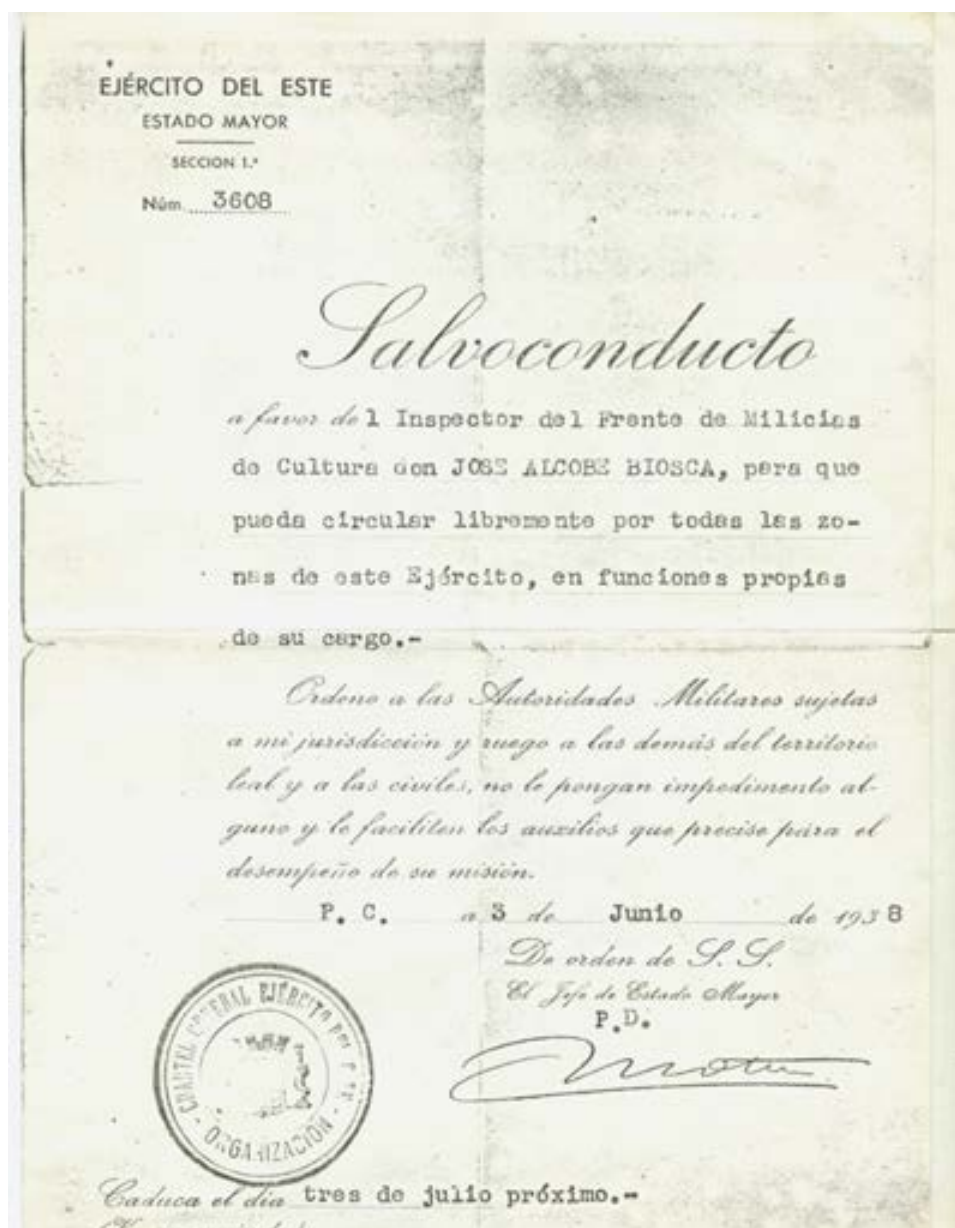 EJÉRCITO DEL ESTE
ESTADO MAYOR
SECCION 1.ª
Núm. 3608
Salvoconducto
a favor de l Inspector del Frente de Milicias
de Cultura don JOSE ALCOBE BIOSCA, para que
pueda circular libremente por todas las zo-
nas de este Ejército, en funciones propias
de su cargo.-
Ordeno a las Autoridades Militares sujetas
a mi jurisdicción y ruego a las demás del territorio
leal y a las civiles, no le pongan impedimento al-
guno y le faciliten los auxilios que precise para el
desempeño de su misión.
P. C. a 3 de Junio de 1938
De orden de S. S.
El Jefe de Estado Mayor
P.D.
CUARTEL GENERAL EJÉRCITO DEL ESTE
- ORGANIZACIÓN -
Caduca el día tres de julio próximo.-